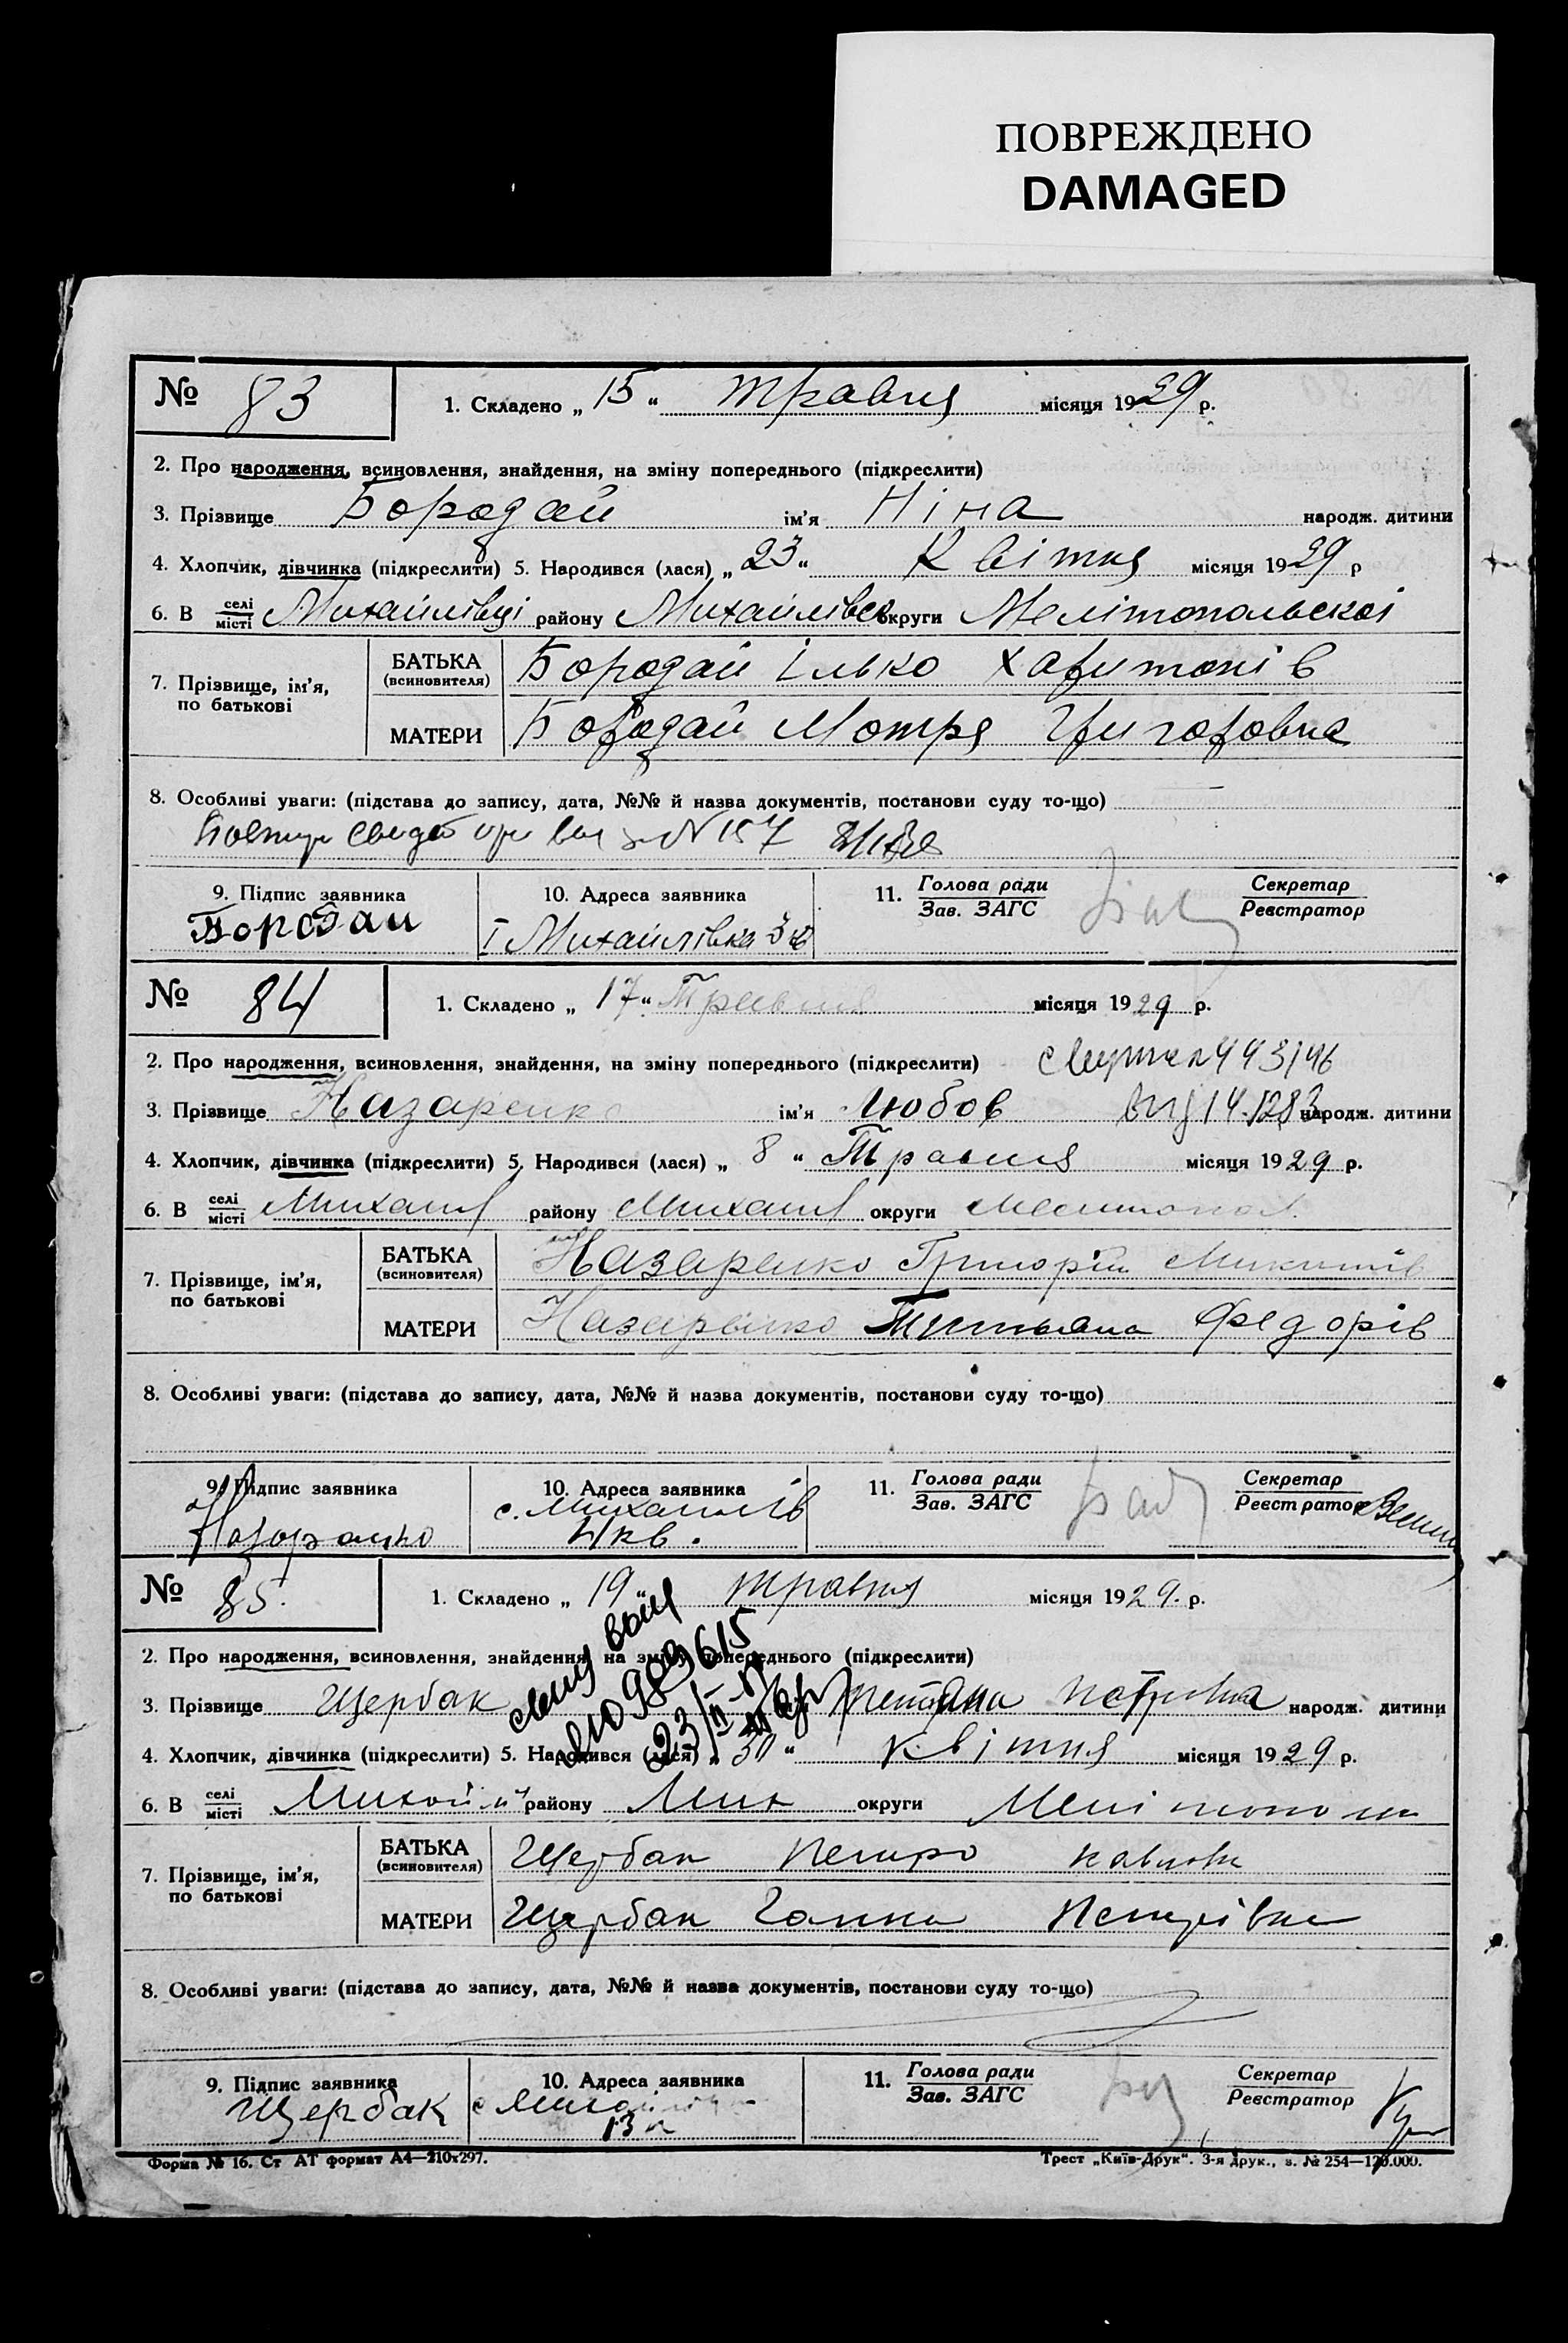 ПОВРЕЖДЕНО
DAMAGED
№ 83
1. Складено „ 15 “ Травня місяця 1929 р.
2. Про народження, всиновлення, знайдення, на зміну попереднього (підкреслити)
3. Прізвище Бородай ім'я Ніна народж. дитини
4. Хлопчик, дівчинка (підкреслити) 5. Народився (лася) „ 23 “ Квітня місяця 1929 р
6. В селі місті Михайлівці району Михайлівск округи Мелітопольскоі
7. Прізвище, ім'я, по батькові
БАТЬКА (всиновителя) Бородай Ілько Харитонів
МАТЕРИ Бородай Мотря Григоровна
8. Особливі уваги: (підстава до запису, дата, №№ й назва документів, постанови суду то-що)
N 157
9. Підпис заявника 10. Адреса заявника 11. Голова ради Зав. ЗАГС Секретар Реєстратор
Бородай І Михайлівка 3 кв
№ 84
1. Складено „ 17 “ Травня місяця 1929 р.
2. Про народження, всиновлення, знайдення, на зміну попереднього (підкреслити)
3. Прізвище Назаренко ім'я Любов народж. дитини
4. Хлопчик, дівчинка (підкреслити) 5. Народився (лася) „ 8 “ Травня місяця 1929 р.
6. В селі місті Михайлів району Михайлів округи Мелитопол.
7. Прізвище, ім'я, по батькові
БАТЬКА (всиновителя) Назаренко Григорій Микитів
МАТЕРИ Назаренко Титьяна Федорів
8. Особливі уваги: (підстава до запису, дата, №№ й назва документів, постанови суду то-що)
9. Підпис заявника 10. Адреса заявника 11. Голова ради Зав. ЗАГС Секретар Реєстратор
Назаренко с. Михайлів
4 кв.
№ 85.
1. Складено „ 19 “ травня місяця 1929. р.
2. Про народження, всиновлення, знайдення, на зміну попереднього (підкреслити)
3. Прізвище Щербак Тетяна Петрівна народж. дитини
4. Хлопчик, дівчинка (підкреслити) 5. Народився (лася) „ 30 “ квітня місяця 1929 р.
6. В селі місті Михайл району Мих округи Мелітопол
7. Прізвище, ім'я, по батькові
БАТЬКА (всиновителя) Щербак Петро
МАТЕРИ Щербак Ганна Петрівна
8. Особливі уваги: (підстава до запису, дата, №№ й назва документів, постанови суду то-що)
9. Підпис заявника 10. Адреса заявника 11. Голова ради Зав. ЗАГС Секретар Реєстратор
Щербак
Форма № 16. Ст АТ формат А4—210х297.
Трест „Київ-Друк“. 3-я друк., з. № 254—120.000.